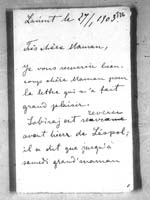 Lancut le 27/1 1903
Très chère Maman,
Je vous remercie bien
coup chère Maman pour
la lettre qui m'a fait
grand plaisir.
revenu
est
avant hier de Léopol;
il a dit que jusqu'à
samedi grand'maman